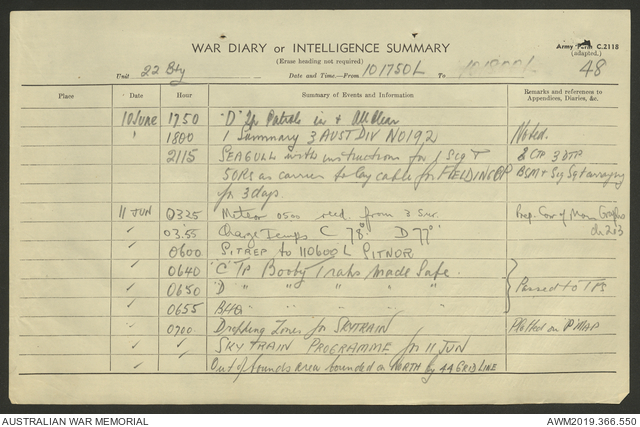 WAR DIARY or INTELLIGENCE SUMMARY
(Erase heading not required)
Army Form C.2118
(adapted.)
48
Unit 22 Bty Date and Time.—From 101750L To
Place Date Hour Summary of Events and Information Remarks and references to Appendices, Diaries, &c.
10 June 1750 "D" Tp Patrols in + All Clear
" 1800 1 Summary 3 AUST DIV NO 192 Noted.
2115 SEAGULL with instructions for 1 Sig + 2 CTP 3 DTP
5 ORs as carriers to lay cable for FIELDING OP BSM + Sig Sgt arranging
for 3 days.
11 JUN 0325 Meteor 0500 recd. from 2 Svy. Prep. Cor of Mom Graphs
" 0355 Charge Temps C 78° D 77°
" 0600 SITREP to 110600 L SITNOR
0640 "C" Tp Booby Traps Made Safe.
0650 "D" " " " " " Passed to TPS
0655 BHQ " " "
0700 Dropping Zones for SKYTRAIN Plotted on "P" MAP
" " SKYTRAIN PROGRAMME for 11 JUN
" " Out of bounds area bounded on NORTH by 44 GRID LINE
AUSTRALIAN WAR MEMORIAL
AWM2019.366.550